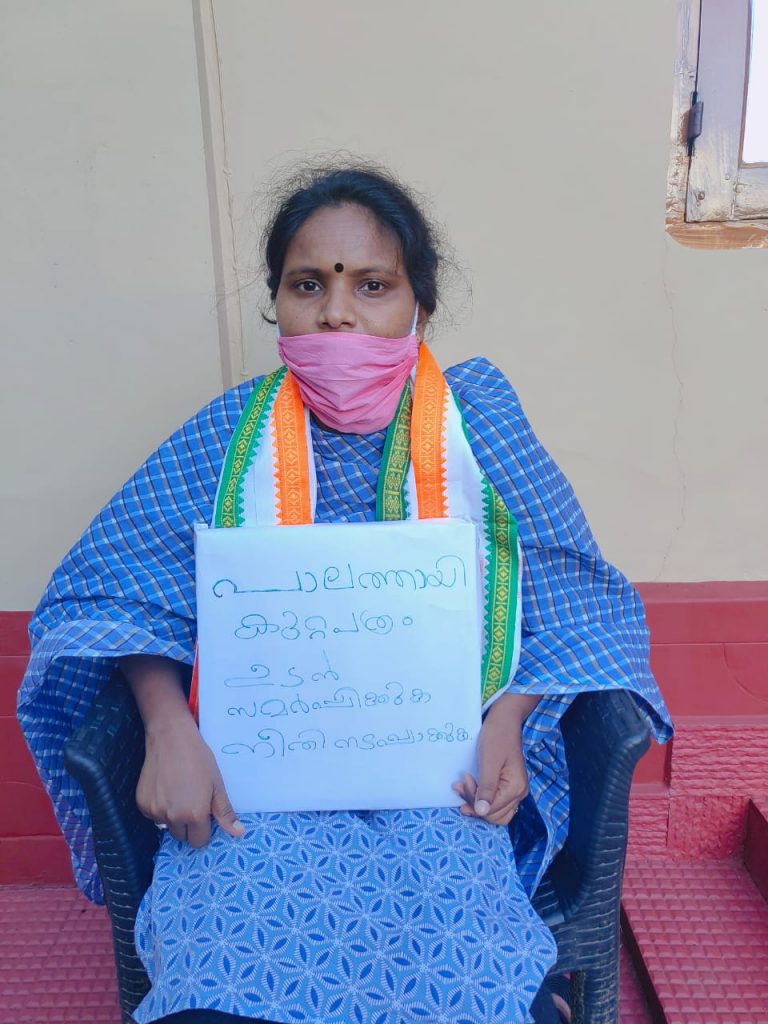 പാലത്തായി
കുറ്റപത്രം
ഉടൻ
സമർപ്പിക്കുക
നീതി നടപ്പാക്കുക